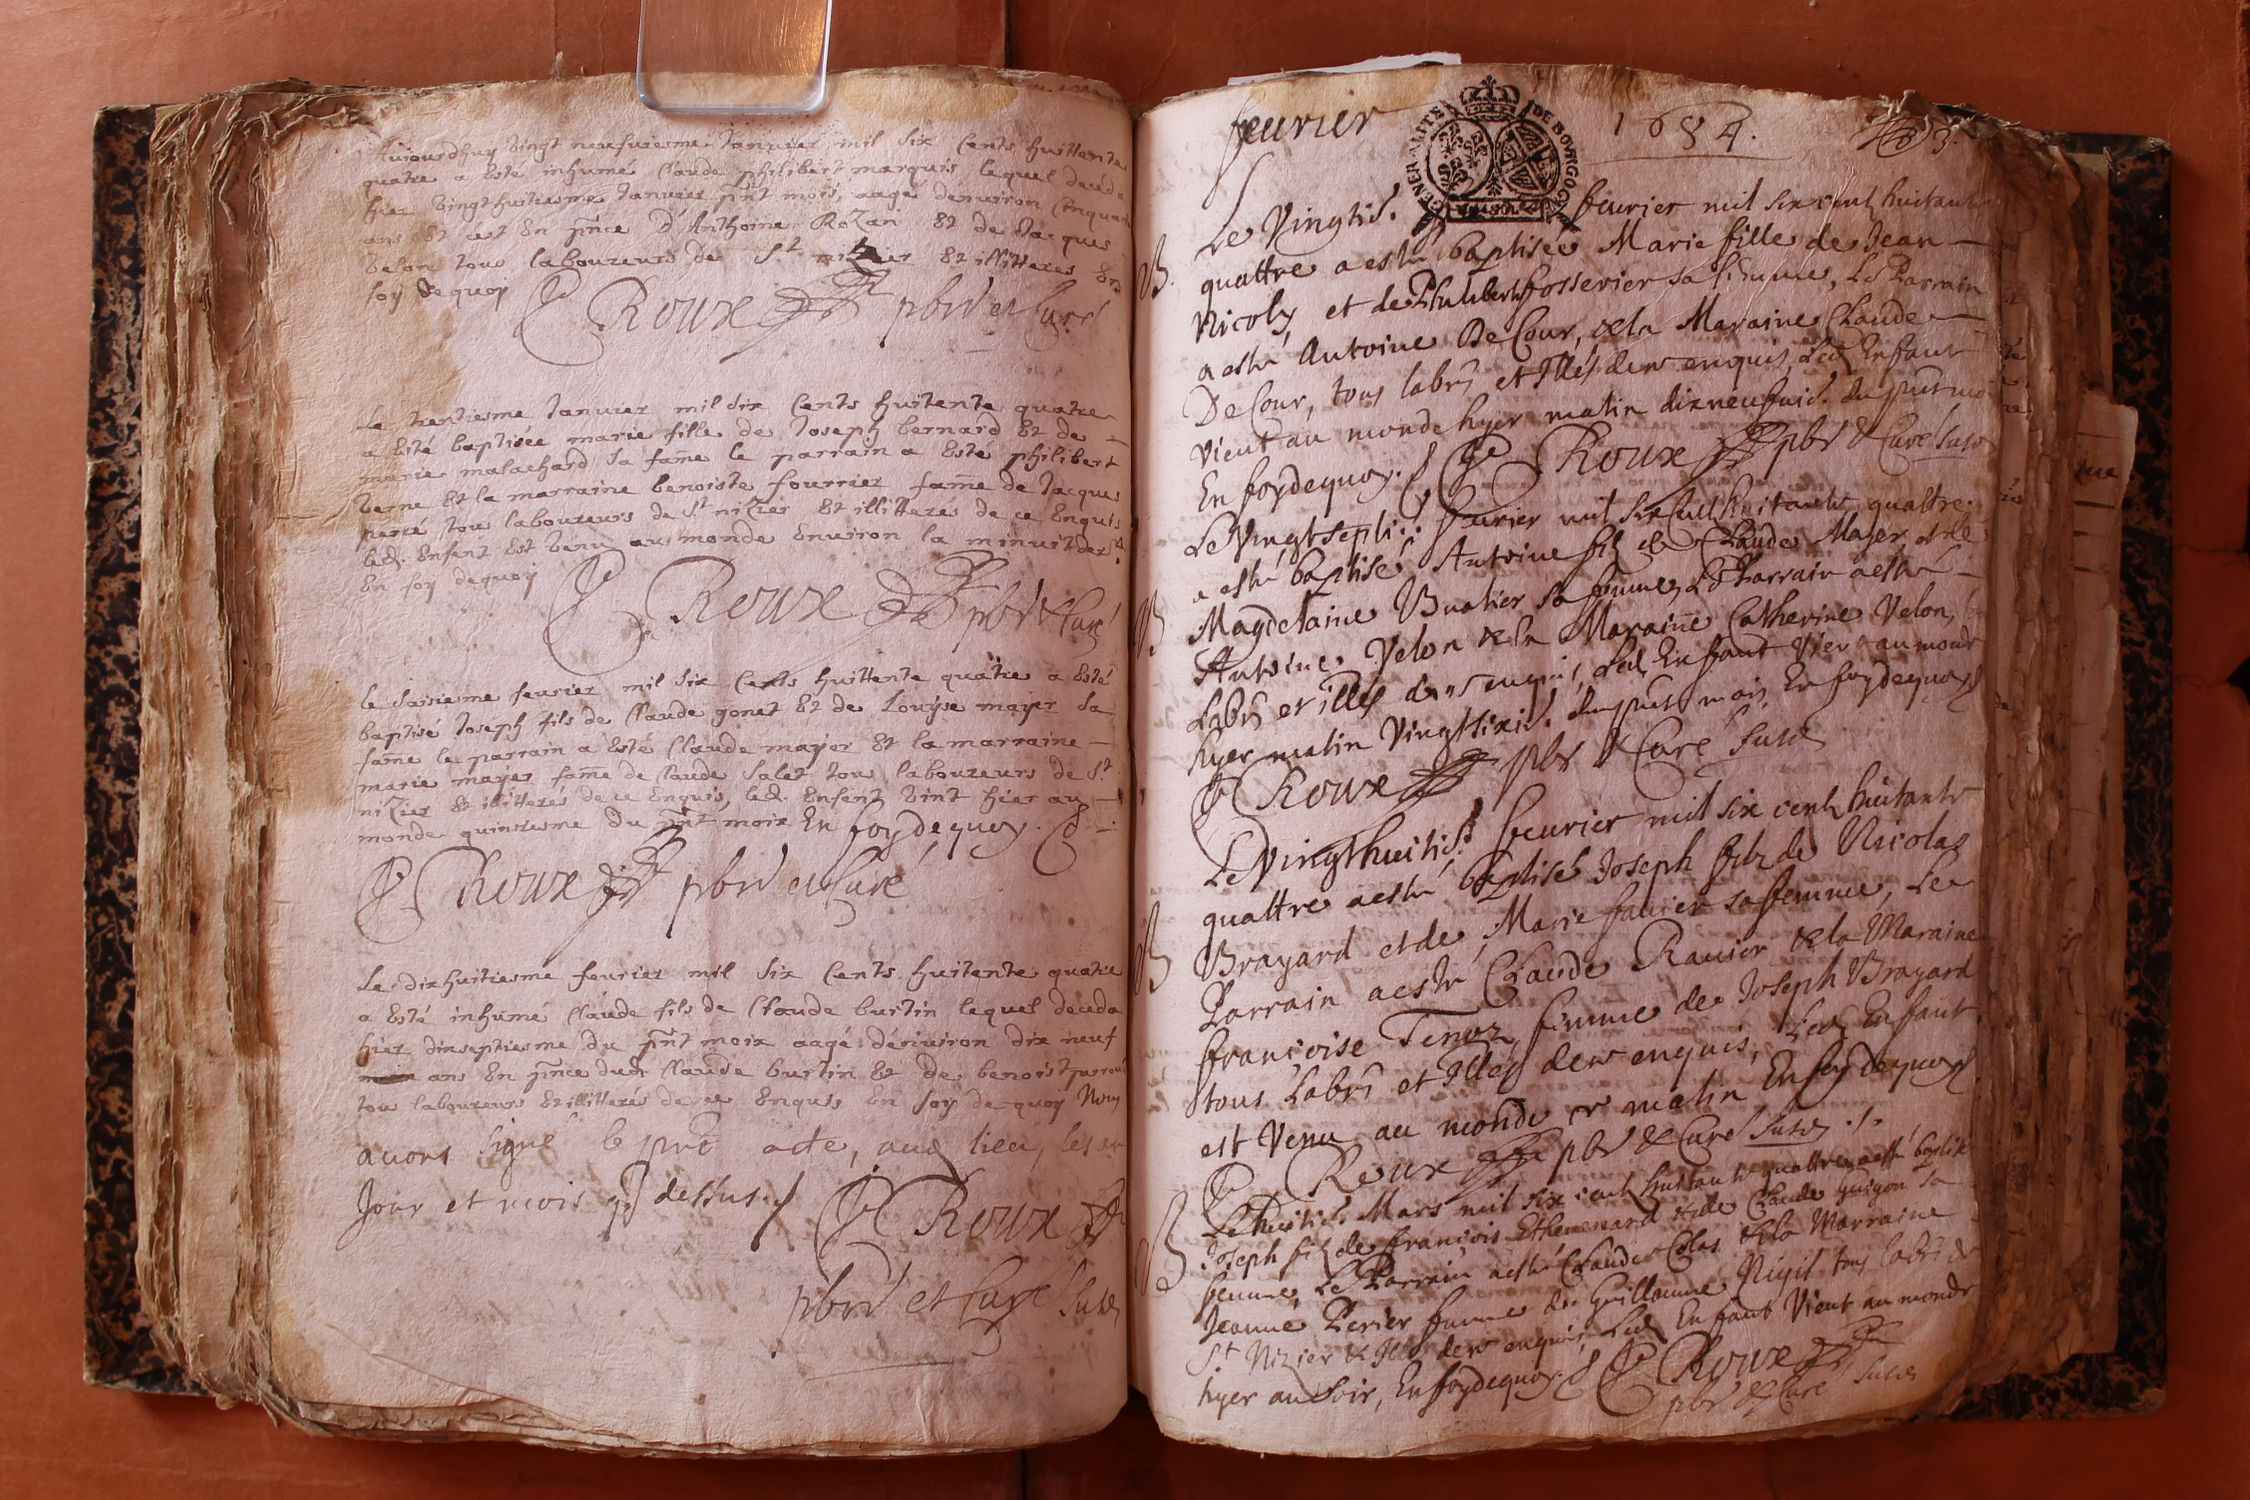 Aujourdhuy vingt neufuiesme Januier mil six cents huittente
quatre a Esté inhumé Claude philibert marquis lequel deceda
hier vingt huitiesme Januier pñt mois, aagé denuiron Cinquante
ans Et c'est En pñce d'Anthoine Rozan Et de Jacques
belon tous laboureurs de St nizier Et illitteres En
foy de quoy
Roux pbre et Curé
Le trentiesme Januier mil six Cents huitente quatre
a Esté baptisée marie fille de Joseph bernard Et de
marie malachard sa fame le parrain a Esté philibert
berne Et la marraine benoiste fourrier fame de Jacques
perré tous laboureurs de St nizier Et illitteres de ce Enquis
led. Enfent Est venu au monde Enuiron la minuit
En foy dequoy
Roux pbr & Curé
Le saisiesme feurier mil six Cents huittente quatre a Esté
baptisé Joseph fils de Claude gonet Et de Louyse mayer sa
fame le parrain a Esté Claude mayer Et la marraine
marie mayer fame de Claude Salet tous laboureurs de St
nizier Et illitterés de ce Enquis, led. Enfent vint hier au
monde quinziesme du pñt moix En foy dequoy.
Roux pbre et Curé
Le dixhuitiesme feurier mil six Cents huitente quatre
a Esté inhumé Claude fils de Claude burtin lequel deceda
hier dixseptiesme du pñt moix aagé dénuiron dix neuf
ans En pñce dud Claude burtin Et de benoist
tous laboureurs Et illitteres de ce Enquis En foy de quoy Nous
auons signé le pnt acte, aud lieu, les an
Jour et mois q dessus
Roux
pbre et Curé susd
feurier 1684.
GENERALITE DE BOURGOGNE
Le Vingtis. feurier mil six cent huitante
B
quattre a esté baptisée Marie fille de Jean
Nicoly et de Philiberte fosserier sa femme, Le Parrain
a esté Antoine De Cour, & la Maraine Claude
De Cour, tous labrs et Illés de ce enquis, Led Enfant
vient au monde hyer matin dixneufuis. du pñt mois
En foy dequoy. Roux pbr & Curé susd
Le Vingtsepti: feurier mil six cent huitante quattre
a esté baptisé Antoine filz de Claude Mayer et de
B
Magdelaine Buatier sa femme, Le Parrain a esté
Antoine Velon & la Maraine Catherine Velon,
Labrs et illés de ce enquis, Led Enfant Vient au monde
hyer matin Vingtsixis. du pñt mois, En foy dequoy
Roux pbr & Curé susd
Le Vingthuitis. feurier mil six cent huitante
quattre a esté baptisé Joseph filz de Nicolas
B
Brayard et de Marie fauier sa femme, Le
Parrain a esté Claude Rauier & la Maraine
françoise Tenoz femme de Joseph Brayard
tous Labrs et Illés de ce enquis, Led Enfant
est Venu au monde ce matin En foy dequoy
Roux pbr & Curé susd ./.
Le huitis. Mars mil six cent huitante quattre a esté baptisé
B
Joseph filz de françois Ethevenard & de Claude guigon sa
femme, Le Parrain a esté Claude Colas & la Marraine
Jeanne Perier femme de Guillaume Nigit tous labrs de
St Nizier & Illés de ce enquis, Led Enfant Vient au monde
hyer au soir, En foy dequoy. Roux
pbr & Curé susd